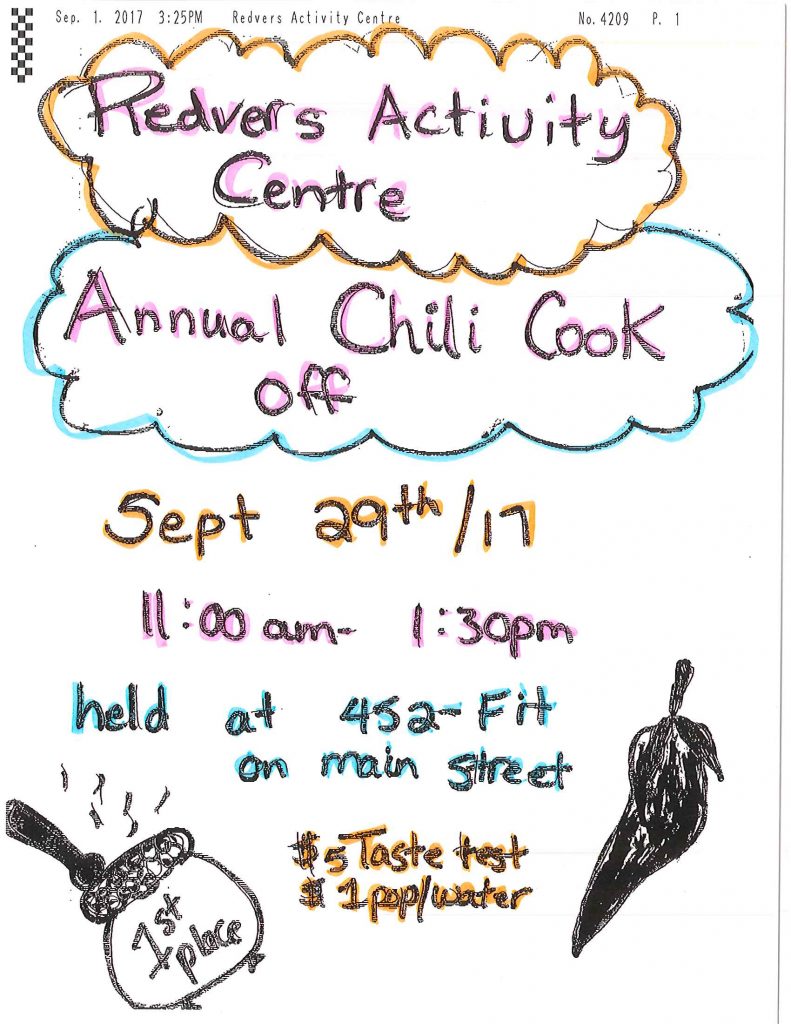 Sep. 1. 2017 3:25PM Redvers Activity Centre No. 4209 P. 1
Redvers Activity
Centre
Annual Chili Cook
off
Sept 29th/17
11:00 am- 1:30pm
held at 452-Fit
on main street
$5 Taste test
$1 pop/water
1st
place